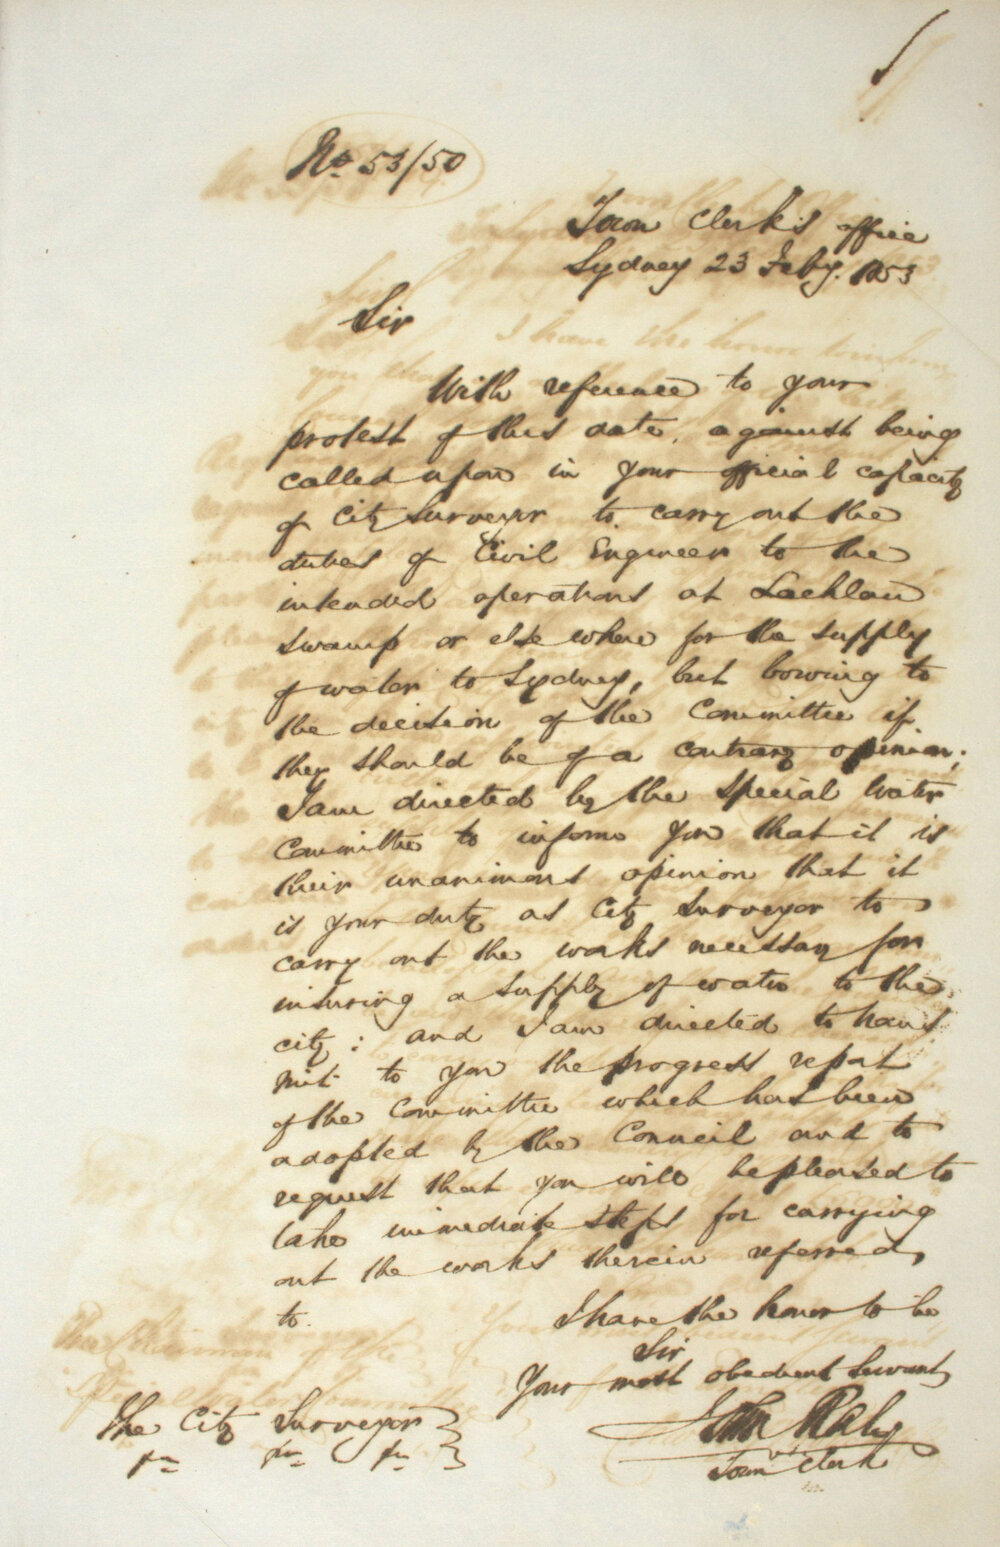 No. 53/50
Town Clerk's office
Sydney 23 Feby. 1853
Sir
With reference to your
protest of this date, against being
called upon in your official capacity
of City Surveyor to carry out the
duties of Civil Engineer to the
intended operations at Lachlan
Swamp or elsewhere for the supply
of water to Sydney, but bowing to
the decision of the Committee if
they should be of a contrary opinion;
I am directed by the Special Water
Committee to inform you that it is
their unanimous opinion that it
is your duty as City Surveyor to
carry out the works necessary for
insuring a supply of water to the
city: and I am directed to trans
mit to you the progress report
of the Committee which has been
adopted by the Council and to
request that you will be pleased to
take immediate steps for carrying
out the works therein referred
to.
I have the honor to be
Sir
Your most obedient Servant
John Rae
Town Clerk
The City Surveyor